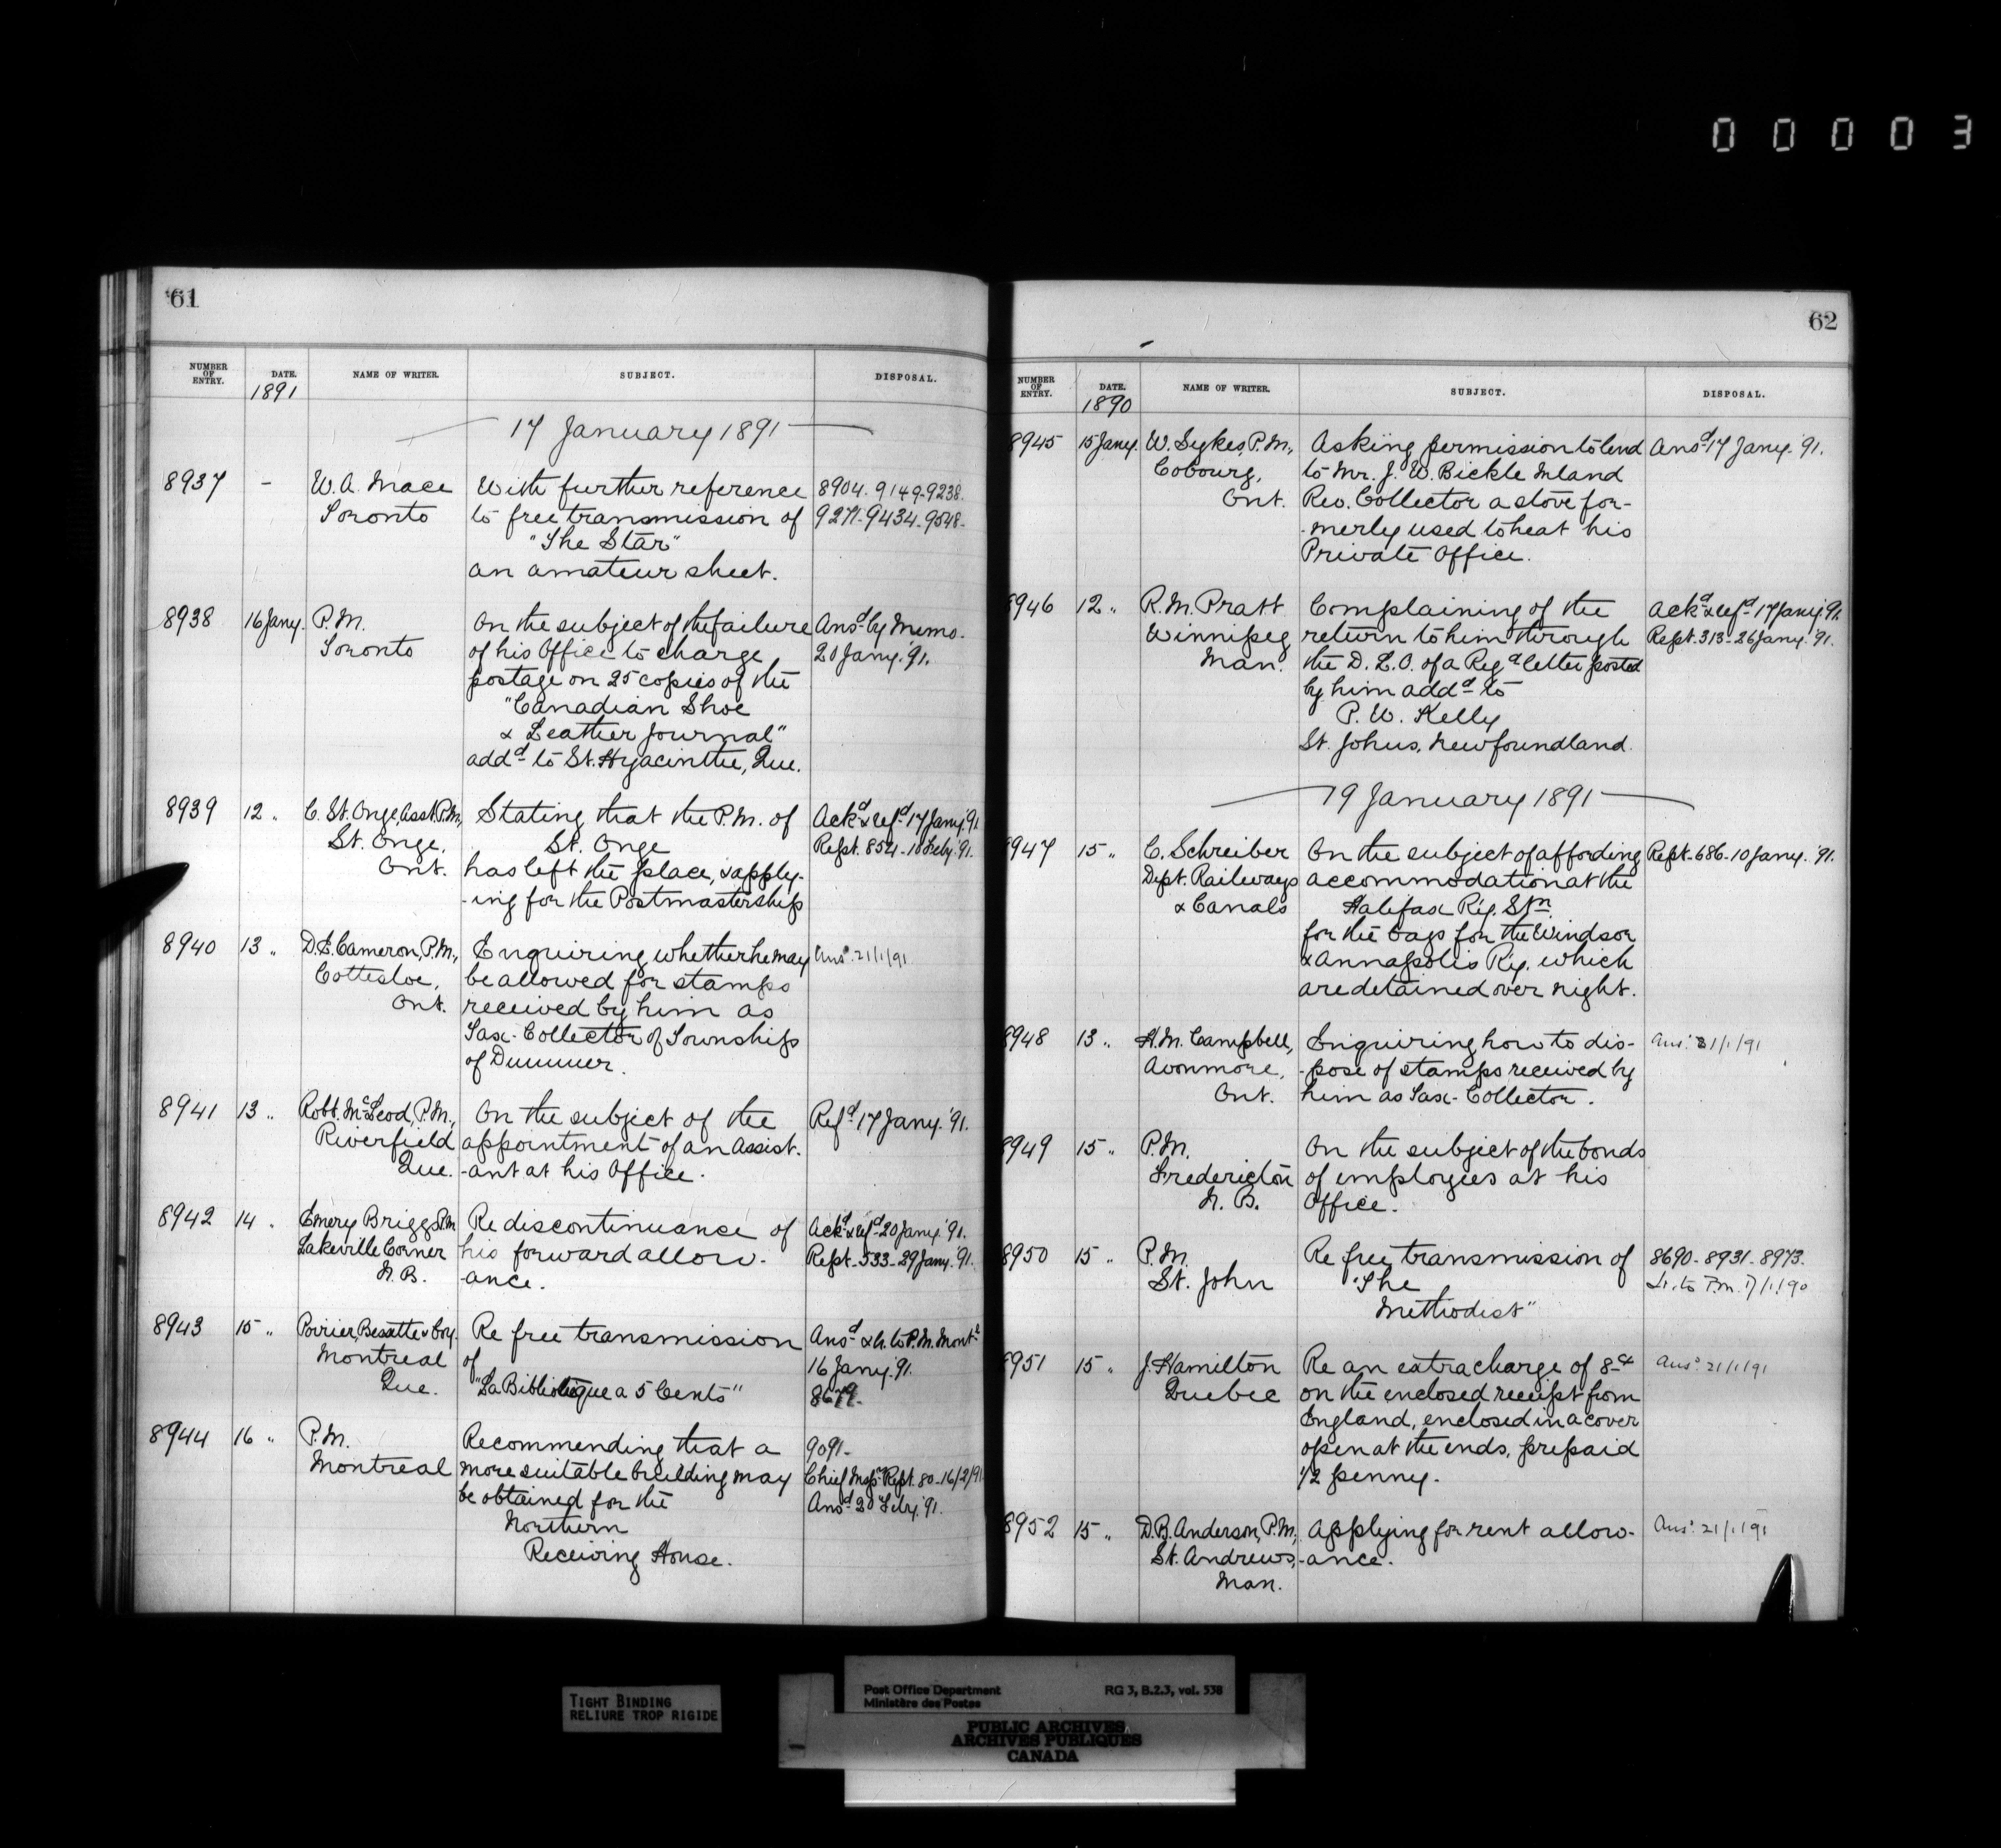 00003
61
NUMBER OF ENTRY. DATE. NAME OF WRITER. SUBJECT. DISPOSAL.
1891
17 January 1891
8937 - W. A. Mace With further reference 8904. 9149-9238.
Toronto to free transmission of 9271-9434-9548-
"The Star"
an amateur sheet.
8938 16 Jany. P.M. On the subject of the failure Ansd. by Memo.
Toronto of his Office to charge 20 Jany. '91.
postage on 25 copies of the
"Canadian Shoe
& Leather Journal"
addd. to St. Hyacinthe, Que.
8939 12 " C. St. Onge, Asst. P.M., Stating that the P.M. of Ackd. & refd. 17 Jany. '91
St. Onge, St. Onge Rept. 854-10 Feby. '91.
Ont. has left the place, & apply-
-ing for the Postmastership
8940 13 " D.E. Cameron, P.M., Enquiring whether he may Ansd. 21/1/91
Cottesloe, be allowed for stamps
Ont. received by him as
Tax-Collector of Townships
of Dummer.
8941 13 " Robt. McLeod, P.M., On the subject of the Refd. 17 Jany. '91.
Riverfield appointment of an Assist.
Que. -ant at his Office.
8942 14 " Emery Briggs P.M. Re discontinuance of Ackd. & refd. 20 Jany. '91.
Lakeville Corner his forward allow- Rept. 533-29 Jany. '91.
N.B. -ance.
8943 15 " Poirier, Besette & Coy. Re free transmission Ansd. & lr. to P.M. Montl.
Montreal of 16 Jany. '91.
Que. "La Bibliotèque a 5 Cents" 8679.
8944 16 " P.M. Recommending that a 9091-
Montreal more suitable building may Chief Inspr. Rept. 80-16/2/91
be obtained for the Ansd. 20 Feby. '91.
Northern
Receiving House.
62
NUMBER OF ENTRY. DATE. NAME OF WRITER. SUBJECT. DISPOSAL.
1890
8945 15 Jany. W. Sykes, P.M., Asking permission to lend Ansd. 17 Jany. '91.
Cobourg, to Mr. J. W. Bickle Inland
Ont. Rev. Collector a stove for-
-merly used to heat his
Private Office.
8946 12 " R. M. Pratt Complaining of the Ackd. & refd. 17 Jany. '91.
Winnipeg return to him through Rept. 313-26 Jany. '91.
Man. the D. L. O. of a Regd. letter posted
by him addd. to
P. W. Kelly
St. Johns, Newfoundland.
19 January 1891
8947 15 " C. Schreiber On the subject of affording Rept. 686-10 Jany. '91.
Dept. Railways accommodation at the
& Canals Halifax Ry. Stn.
for the bags for the Windsor
& Annapolis Ry. which
are detained over night.
8948 13 " H. M. Campbell, Enquiring how to dis- Ansd. 21/1/91
Avonmore, -pose of stamps received by
Ont. him as Tax-Collector.
8949 15 " P.M. On the subject of the bonds
Fredericton of employees at his
N. B. Office.
8950 15 " P.M. Re free transmission of 8690-8931-8973.
St. John "The Lr. to P.M. 17/1/90
Methodist"
8951 15 " J. Hamilton Re an extra charge of 8 cts Ansd. 21/1/91
Quebec on the enclosed receipt from
England, enclosed in a cover
open at the ends, prepaid
1/2 penny.
8952 15 " D. B. Anderson, P.M., Applying for rent allow- Ansd. 21/1/91
St. Andrews, -ance.
Man.
TIGHT BINDING
RELIURE TROP RIGIDE
Post Office Department RG 3, B.2.3, vol. 538
Ministère des Postes
PUBLIC ARCHIVES
ARCHIVES PUBLIQUES
CANADA